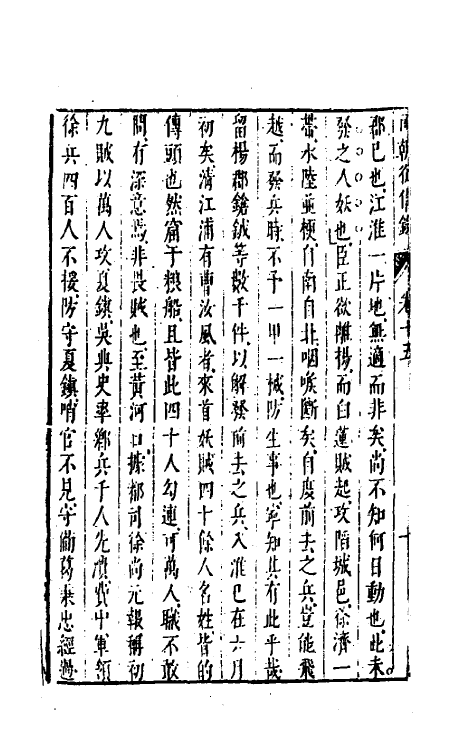 兩朝從信錄 卷十五 十
郡已也江淮一片地無適而非矣尚不知何日動也此未
發之人妖也臣正欲離揚而白蓮賊起攻陷城邑徐濟一
帶水陸並梗自南自北咽喉斷矣自度前去之兵豈能飛
越而發兵時不予一甲一械防生事也寧知其有此乎哉
留楊郡鎗鉞等數千件以解發前去之兵入淮已在六月
初矣清江浦有曹汝風者來首妖賊四十餘人名姓皆的
傳頭也然窟于糧船且皆此四十人勾連可萬人職不敢
問有深意焉非畏賊也至黃河口據都司徐尚元報稱初
九賊以萬人攻夏鎮吳典史率鄉兵千人先潰費中軍領
徐兵四百人不援防守夏鎮哨官不見守備葛秉忠經過